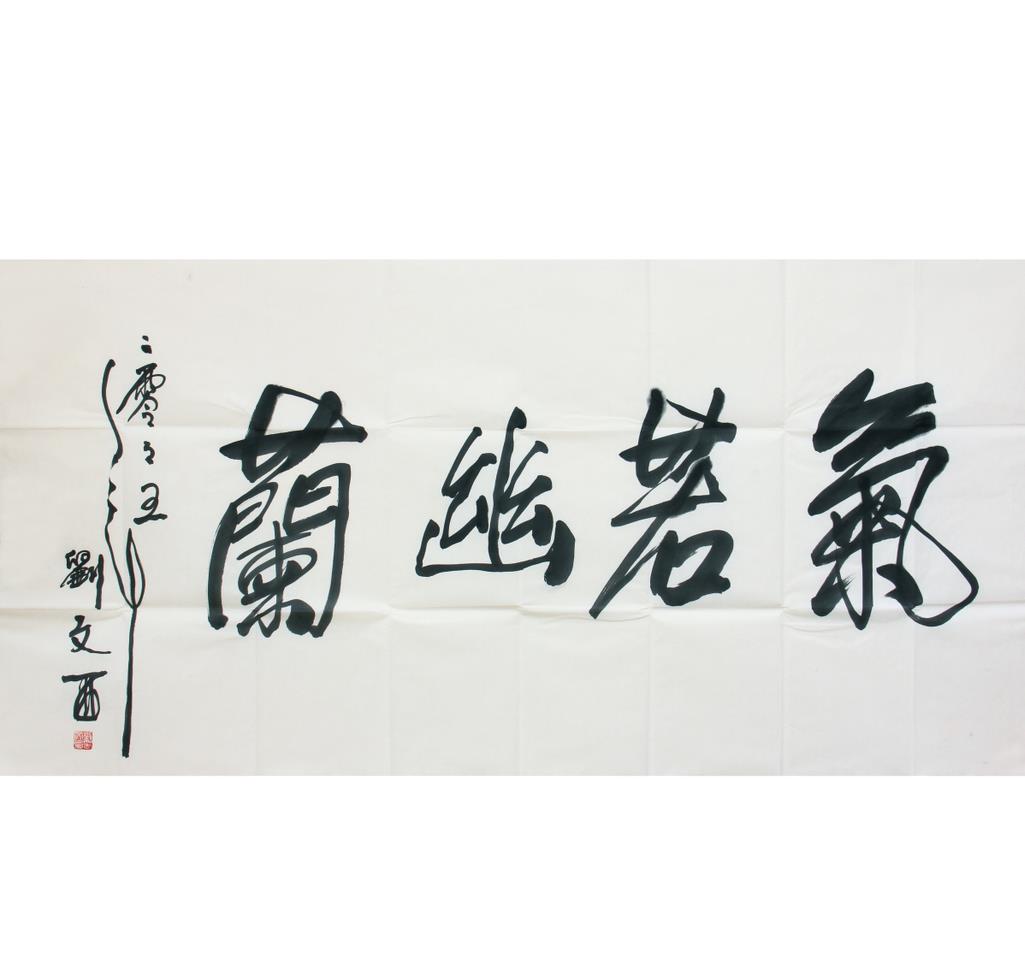 氣若幽蘭
二零零五年
劉文西